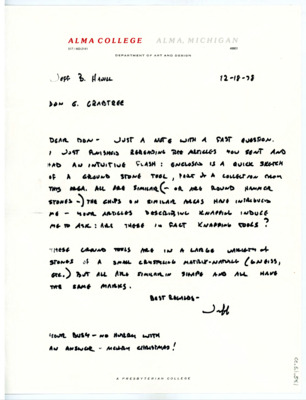 ALMA COLLEGE ALMA, MICHIGAN
DEPARTMENT OF ART AND DESIGN
12-18-78
DON E. CRABTREE
DEAR DON - JUST A NOTE WITH A FAST QUESTION.
I JUST FINISHED REREADING THE ARTICLES YOU SENT AND
HAD AN INTUITIVE FLASH: ENCLOSED IS A QUICK SKETCH
OF A GROUND STONE TOOL, PART OF A COLLECTION FROM
THIS AREA. ALL ARE SIMILAR (- OR ARE ROUND HAMMER
STONES -) THE CHIPS ON SIMILAR AREAS HAVE INTRIGUED
ME - YOUR ARTICLES DESCRIBING KNAPPING INDUCE
ME TO ASK: ARE THESE IN FACT KNAPPING TOOLS?
THESE GROUND TOOLS ARE IN A LARGE VARIETY OF
STONES OF A SMALL CRYSTALLINE MATRIX - (GNEISS,
ETC.) BUT ALL ARE SIMILAR IN SHAPE AND ALL HAVE
THE SAME MARKS.
BEST REGARDS -
Jeff
YOUR BUSY - NO HURRY WITH
AN ANSWER - MERRY CHRISTMAS!
A PRESBYTERIAN COLLEGE